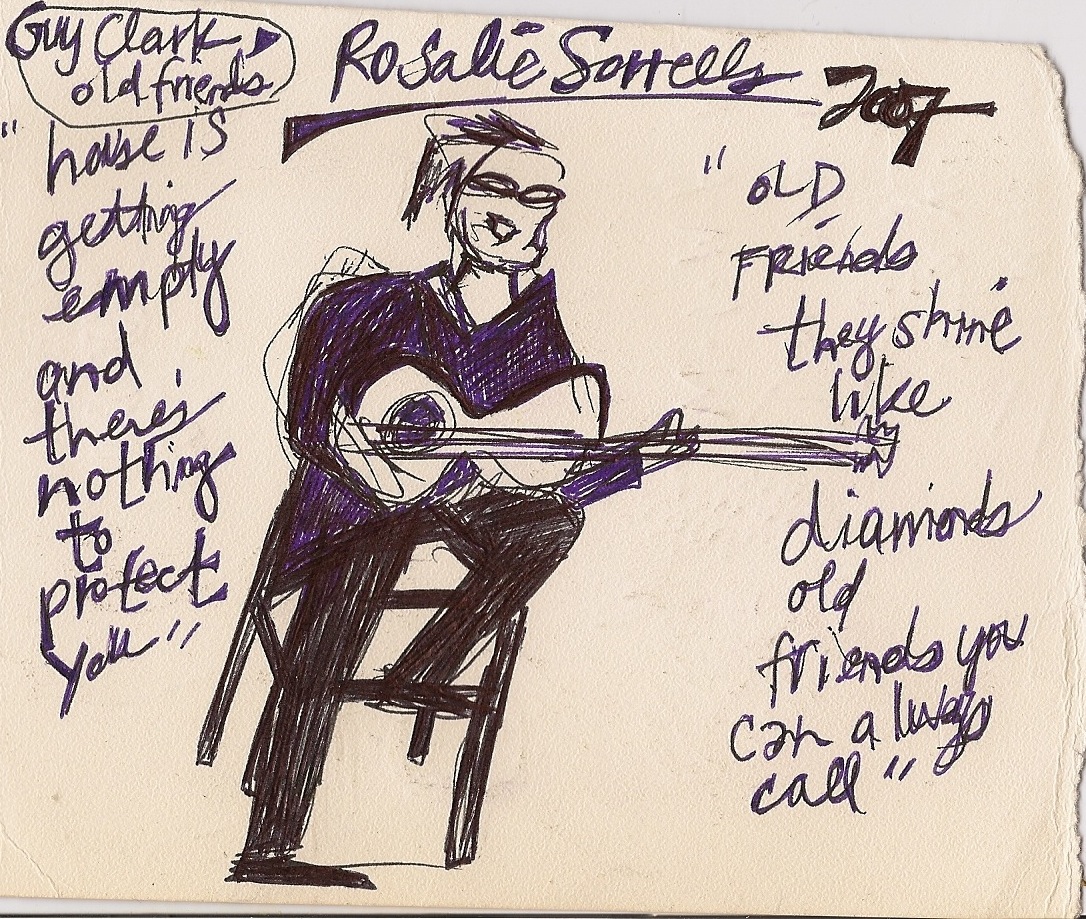 Guy Clark
old friends
Rosalie Sorrells
2007
"house is
getting
empty
and
there's
nothing
to
protect
you"
"OLD
FRiends
they shine
like
diamonds
old
friends you
can always
call"